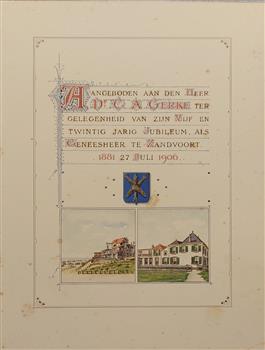 AANGEBODEN AAN DEN HEER
Dr. C. A. GERKE TER
GELEGENHEID VAN ZIJN VIJF EN
TWINTIG JARIG JUBILEUM, ALS
GENEESHEER TE ZANDVOORT.
1881 27 JULI 1906.